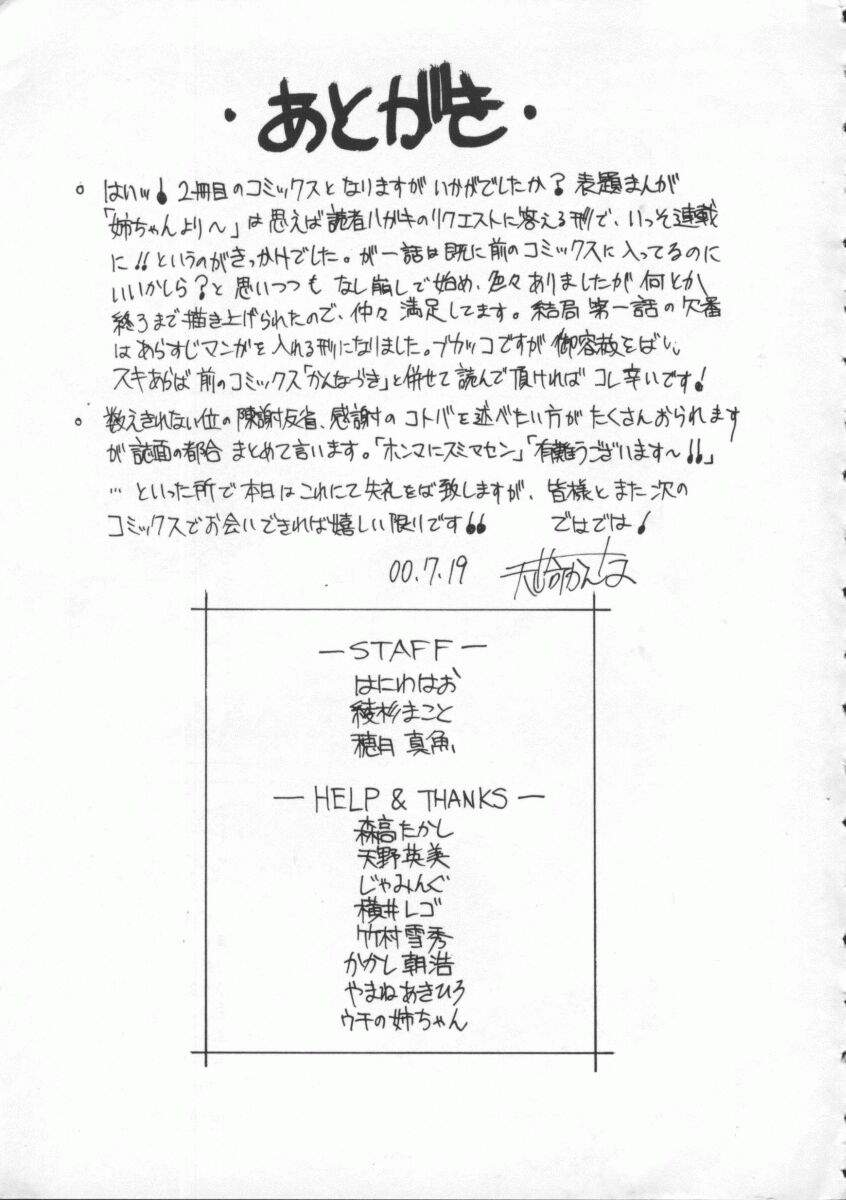 ・あとがき・
○ はいッ! 2冊目のコミックスとなりますが いかがでしたか? 表題まんが
「姉ちゃんより〜」は思えば読者ハガキのリクエストに答える形で、いっそ連載
に!!というのがきっかけでした。が一話は既に前のコミックスに入ってるのに
いいかしら?と思いつつも なし崩しで始め、色々ありましたが 何とか
終了まで描き上げられたので、仲々 満足してます。結局 第一話の欠番
はあらすじマンガを入れる形になりました。ブカッコですが 御容赦をばし、
スキあらば 前のコミックス「かんなづき」と併せて 読んで頂ければ コレ幸いです!
○ 数えきれない位の陳謝反省、感謝の コトバを述べたい方が たくさんおられます
が 誌面の都合 まとめて言います。「ホンマにスミマセン」「有難うございます〜!!」
… といった所で本日は これにて 失礼をば致しますが、皆様と また 次の
コミックスでお会いできれば 嬉しい 限りです!! ではでは!
00.7.19 天崎かんな
—STAFF—
はにわはお
綾杉まこと
穂月 真魚
— HELP & THANKS —
森高たかし
天野英美
じゃみんぐ
横井レゴ
竹村雪秀
かかし朝浩
やまねあきひろ
ウチの姉ちゃん